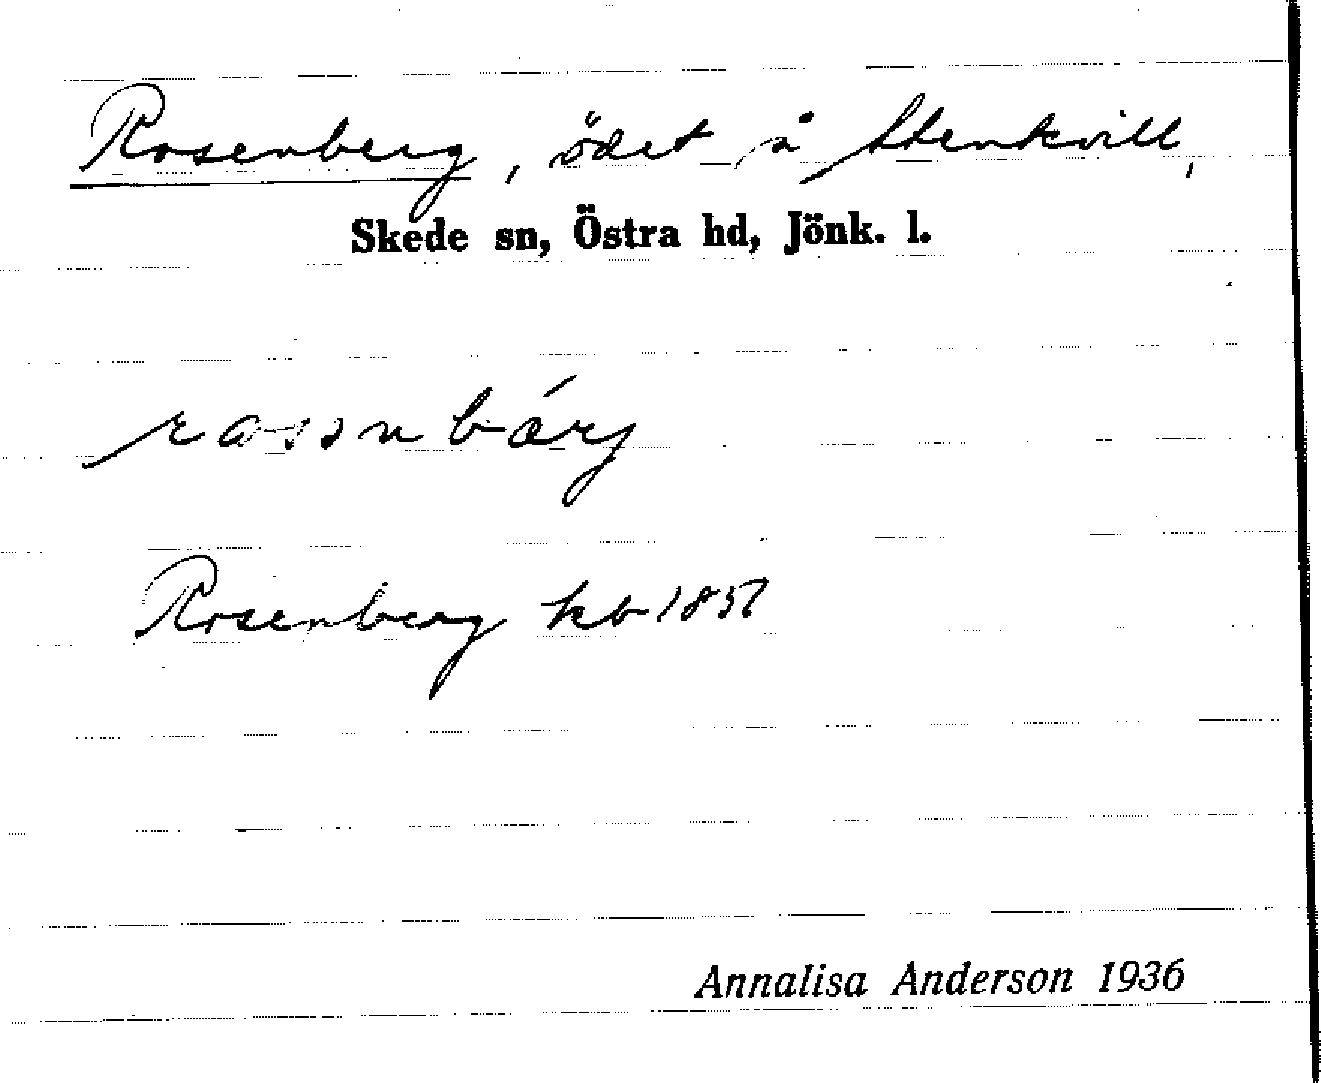 Rosenberg, ödet å Stenkvill,
Skede sn, Östra hd, Jönk. l.
Rosenberg kb 1857
Annalisa Anderson 1936